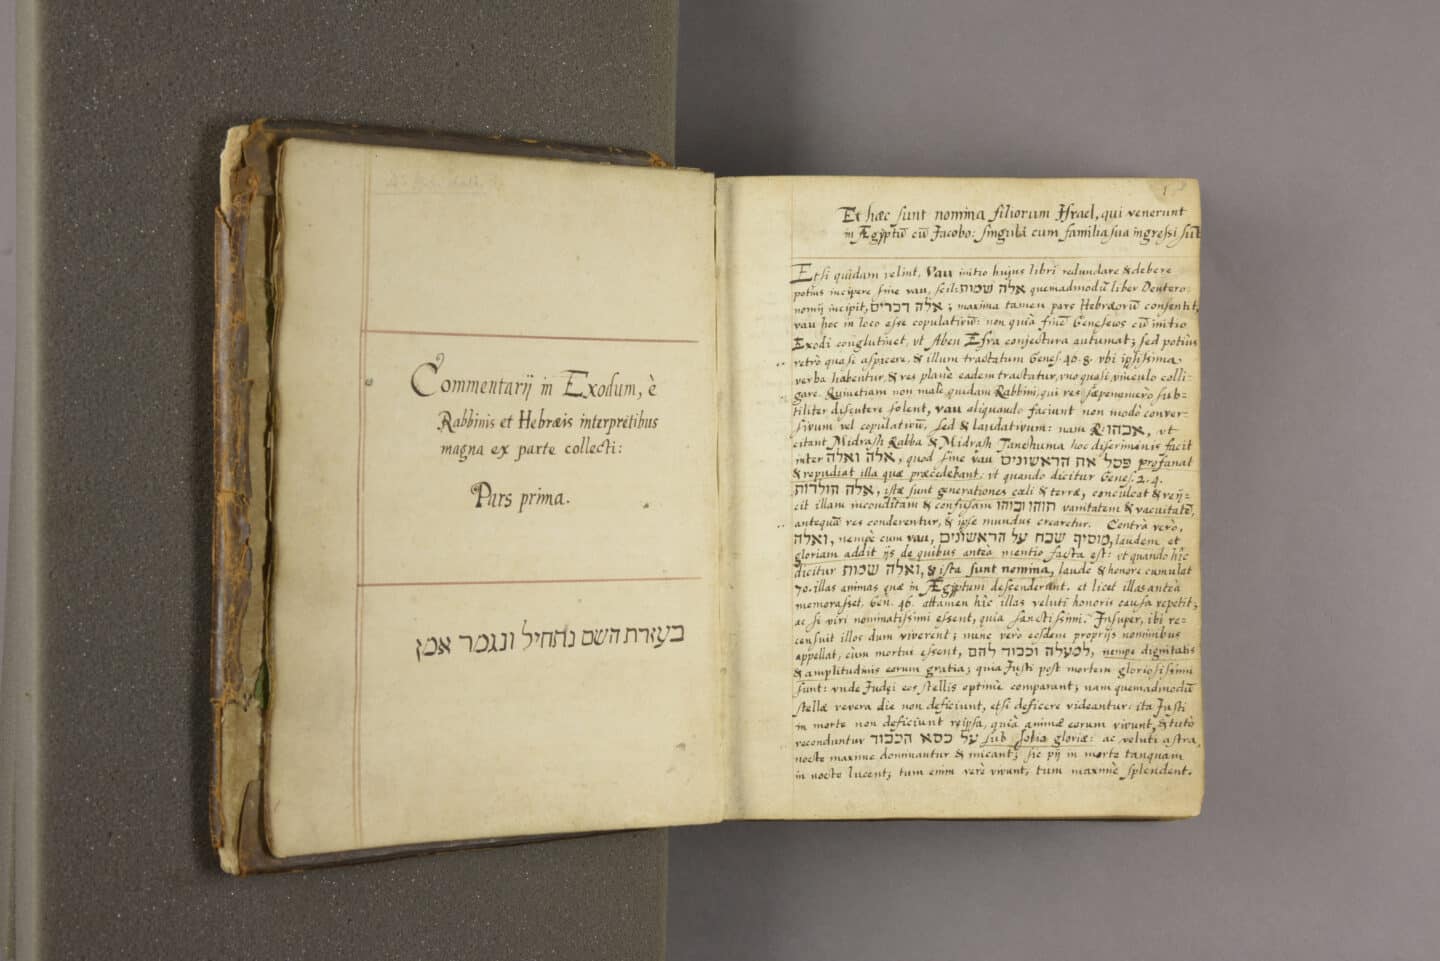 Commentarij in Exodum, è
Rabbinis et Hebræis interpretibus
magna ex parte collecti:
Pars prima.
בעזרת השם נתחיל ונגמר אמן
1
Et hæc sunt nomina filiorum Israel, qui venerunt
in Ægyptū cū Jacobo: singuli cum familia sua ingressi sūt
Etsi quidam velint, Vau initio hujus libri redundare & debere
potius incipere sine vau, scil: אלה שמות quemadmodū liber Deutero-
nomij incipit, אלה דברים; maxima tamen pars Hebræorū consentit,
vau hoc in loco esse copulativū: non quià finē Geneseωs cū initio
Exodi conglutinet, vt Aben Esra conjectura autumat; sed potius
retrò quasi aspicere, & illum tractatum Genes. 46. 8. vbi ipsissima
verba habentur, & res planè eadem tractatur, vno quasi vinculo colli-
gare. Quinetiam non malè quidam Rabbini, qui res sæpenumero sub-
tiliter discutere solent, vau aliquando faciunt non modò conver-
sivum vel copulativū, sed & laudativum: nam R. אבהו, vt
citant Midrash Rabba & Midrash Tanchuma hoc discriminis facit
inter אלה ואלה, quod sine vau פסל את הראשונים profanat
& repudiat illa quæ præcedebant, vt quando dicitur Genes. 2. 4.
אלה תולדות, istæ sunt generationes cœli & terræ, conculcat & reij-
cit illam inconditam & confusam תוהו ובוהו vanitatem & vacuitatē,
antequā res conderentur, & ipse mundus crearetur. Contrà verò,
ואלה, nempè cum vau, מוסיף שבח על הראשונים, laudem et
gloriam addit ijs de quibus antea mentio facta est: vt quando hîc
dicitur ואלה שמות, & ista sunt nomina, laude & honore cumulat
70. illas animas quæ in Ægyptum descenderant. et licet illas anteà
memorasset, Gen. 46. attamen hîc illas veluti honoris causa repetit;
ac si viri nominatissimi essent, quia sanctissimi. Insuper, ibi re-
censuit illos dum viverent; nunc verò eosdem proprijs nominibus
appellat, cùm mortui essent, למעלה וכבוד להם, nempe dignitatis
& amplitudinis eorum gratia; quia Justi post mortem gloriosissimi
sunt: vnde Judæi eos stellis optimè comparant; nam quemadmodū
stellæ revera die non deficiunt, etsi deficere videantur: ita Justi
in morte non deficiunt reipsa, quià animæ eorum vivunt, & tutò
reconduntur על כסא הכבוד sub solio gloriæ: ac veluti astra
nocte maxime dominantur & micant; sic pij in morte tanquam
in nocte lucent; tum enim verè vivunt, tum maximè splendent.